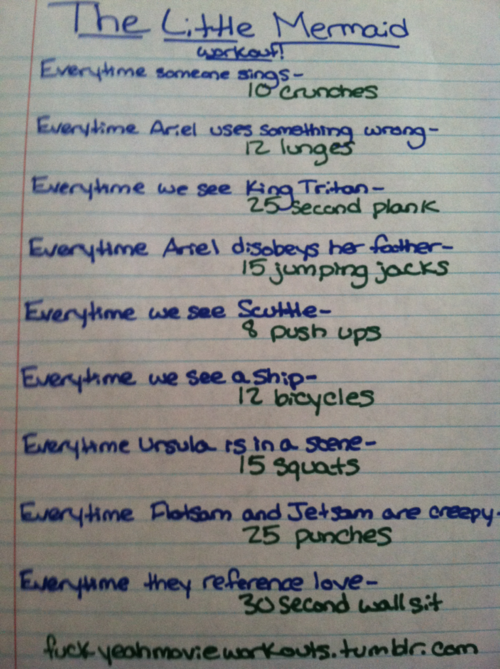 The Little Mermaid
workout!
Everytime someone sings-
10 crunches
Everytime Ariel uses something wrong-
12 lunges
Everytime we see King Tritan-
25 second plank
Everytime Ariel disobeys her father-
15 jumping jacks
Everytime we see Scuttle-
8 push ups
Everytime we see a ship-
12 bicycles
Everytime Ursula is in a scene-
15 squats
Everytime Flotsam and Jetsam are creepy-
25 punches
Everytime they reference love-
30 second wall sit
fuckyeahmovieworkouts.tumblr.com